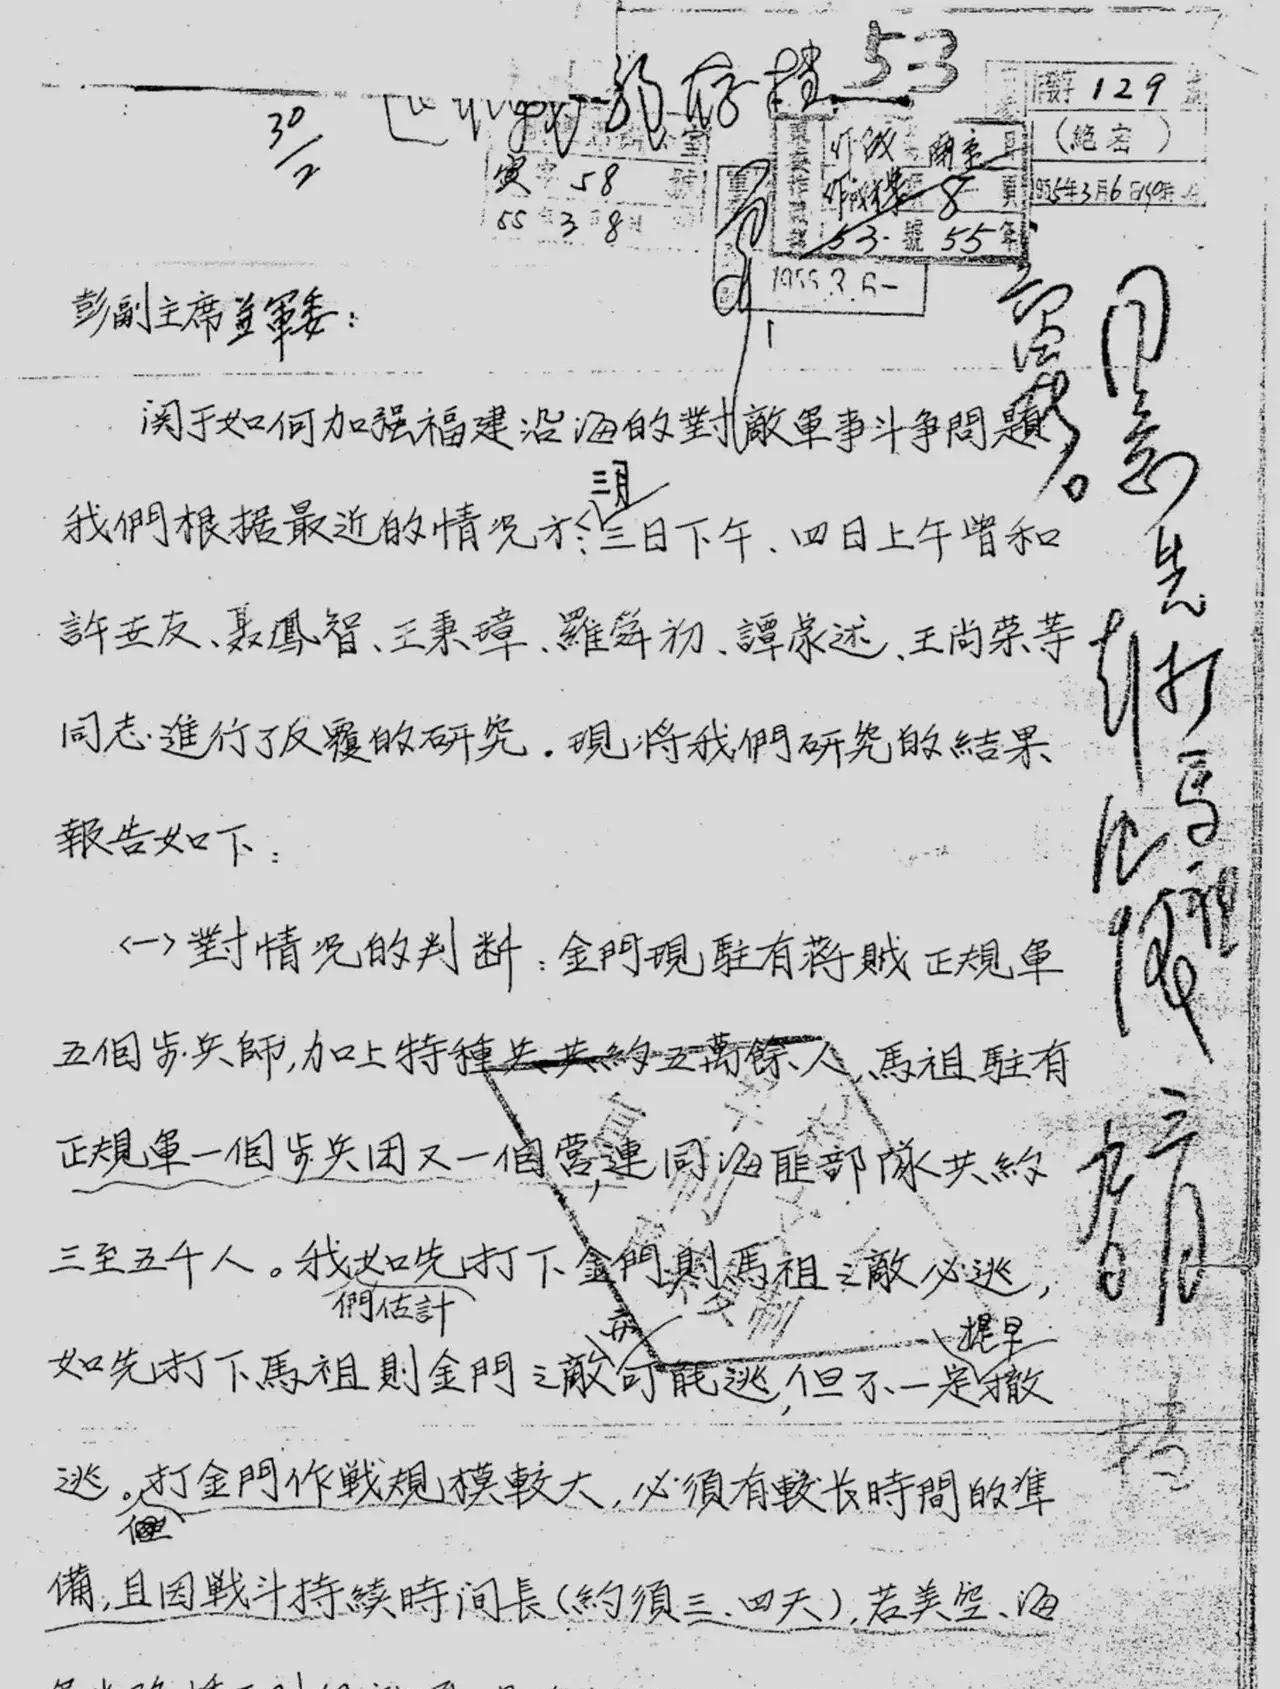 53
30/2
存档
129
(絶密)
1955年3月6日
寅字 58 號
55 3 8
作战
8
53 號 55年
1955.3.6-
彭副主席並軍委：
関于如何加强福建沿海的對敵軍事斗争問題，
我們根据最近的情况於三月三日下午、四日上午曾和
許世友、聂鳳智、王秉璋、羅舜初、譚家述、王尚荣等
同志進行了反覆的研究。現将我們研究的結果
報告如下：
〈一〉對情况的判断：金門現駐有蒋賊正規軍
五個步兵師，加上特種兵共約五萬餘人，馬祖駐有
正規軍一個步兵团又一個营，連同海匪部隊共約
三至五千人。我們估計如先打下金門則馬祖之敵必逃，
如先打下馬祖則金門之敵亦可能逃，但不一定提早撤
逃。打金門作戦規模較大，必須有較长時間的準
備，且因戦斗持續時间長(約須三、四天)，若美空、海
同意先打馬祖